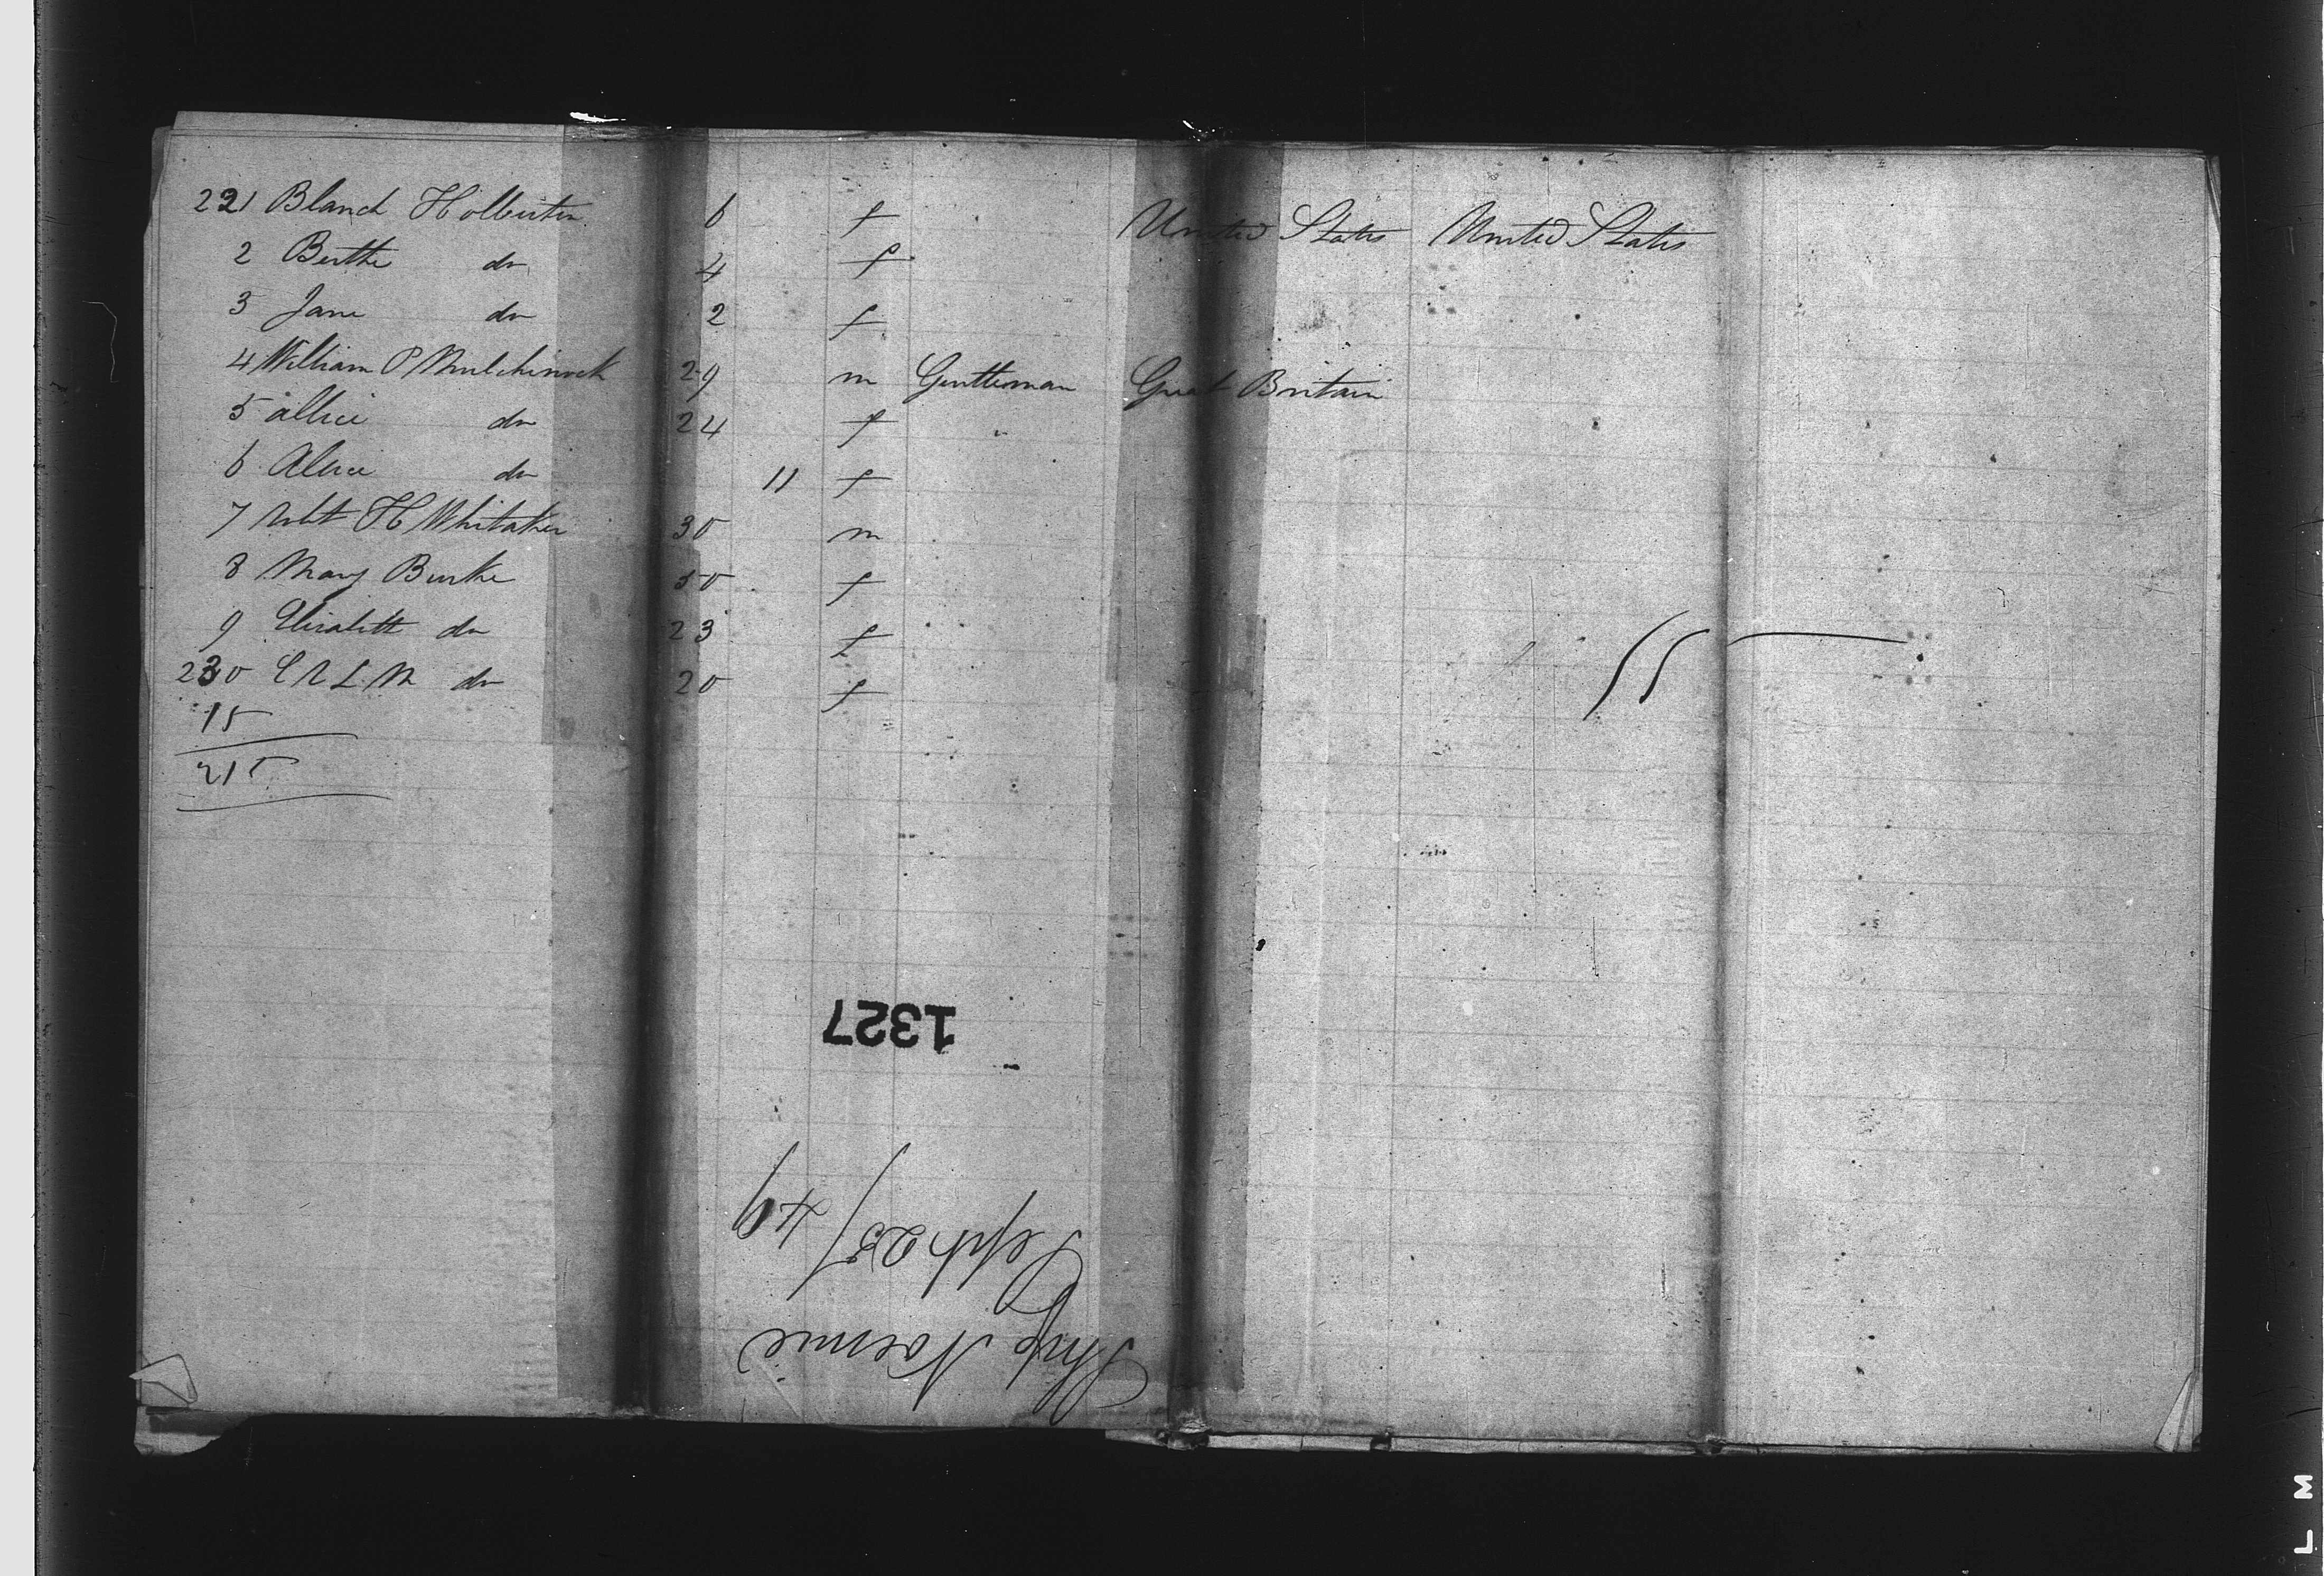 221 Blanch Holbertin 6 f United States United States
2 Berthe do 4 f
3 Jane do 2 f
4 William P Mulchinock 29 m Gentleman Great Britain
5 allice do 24 f "
6 Alice do 11 f
7 Robt H Whitaker 30 m
8 Mary Burke 50 f
9 Elizabeth do 23 f
230 do 20 f
15
215
1327
Ship Noemie
Sept 25/49
L M